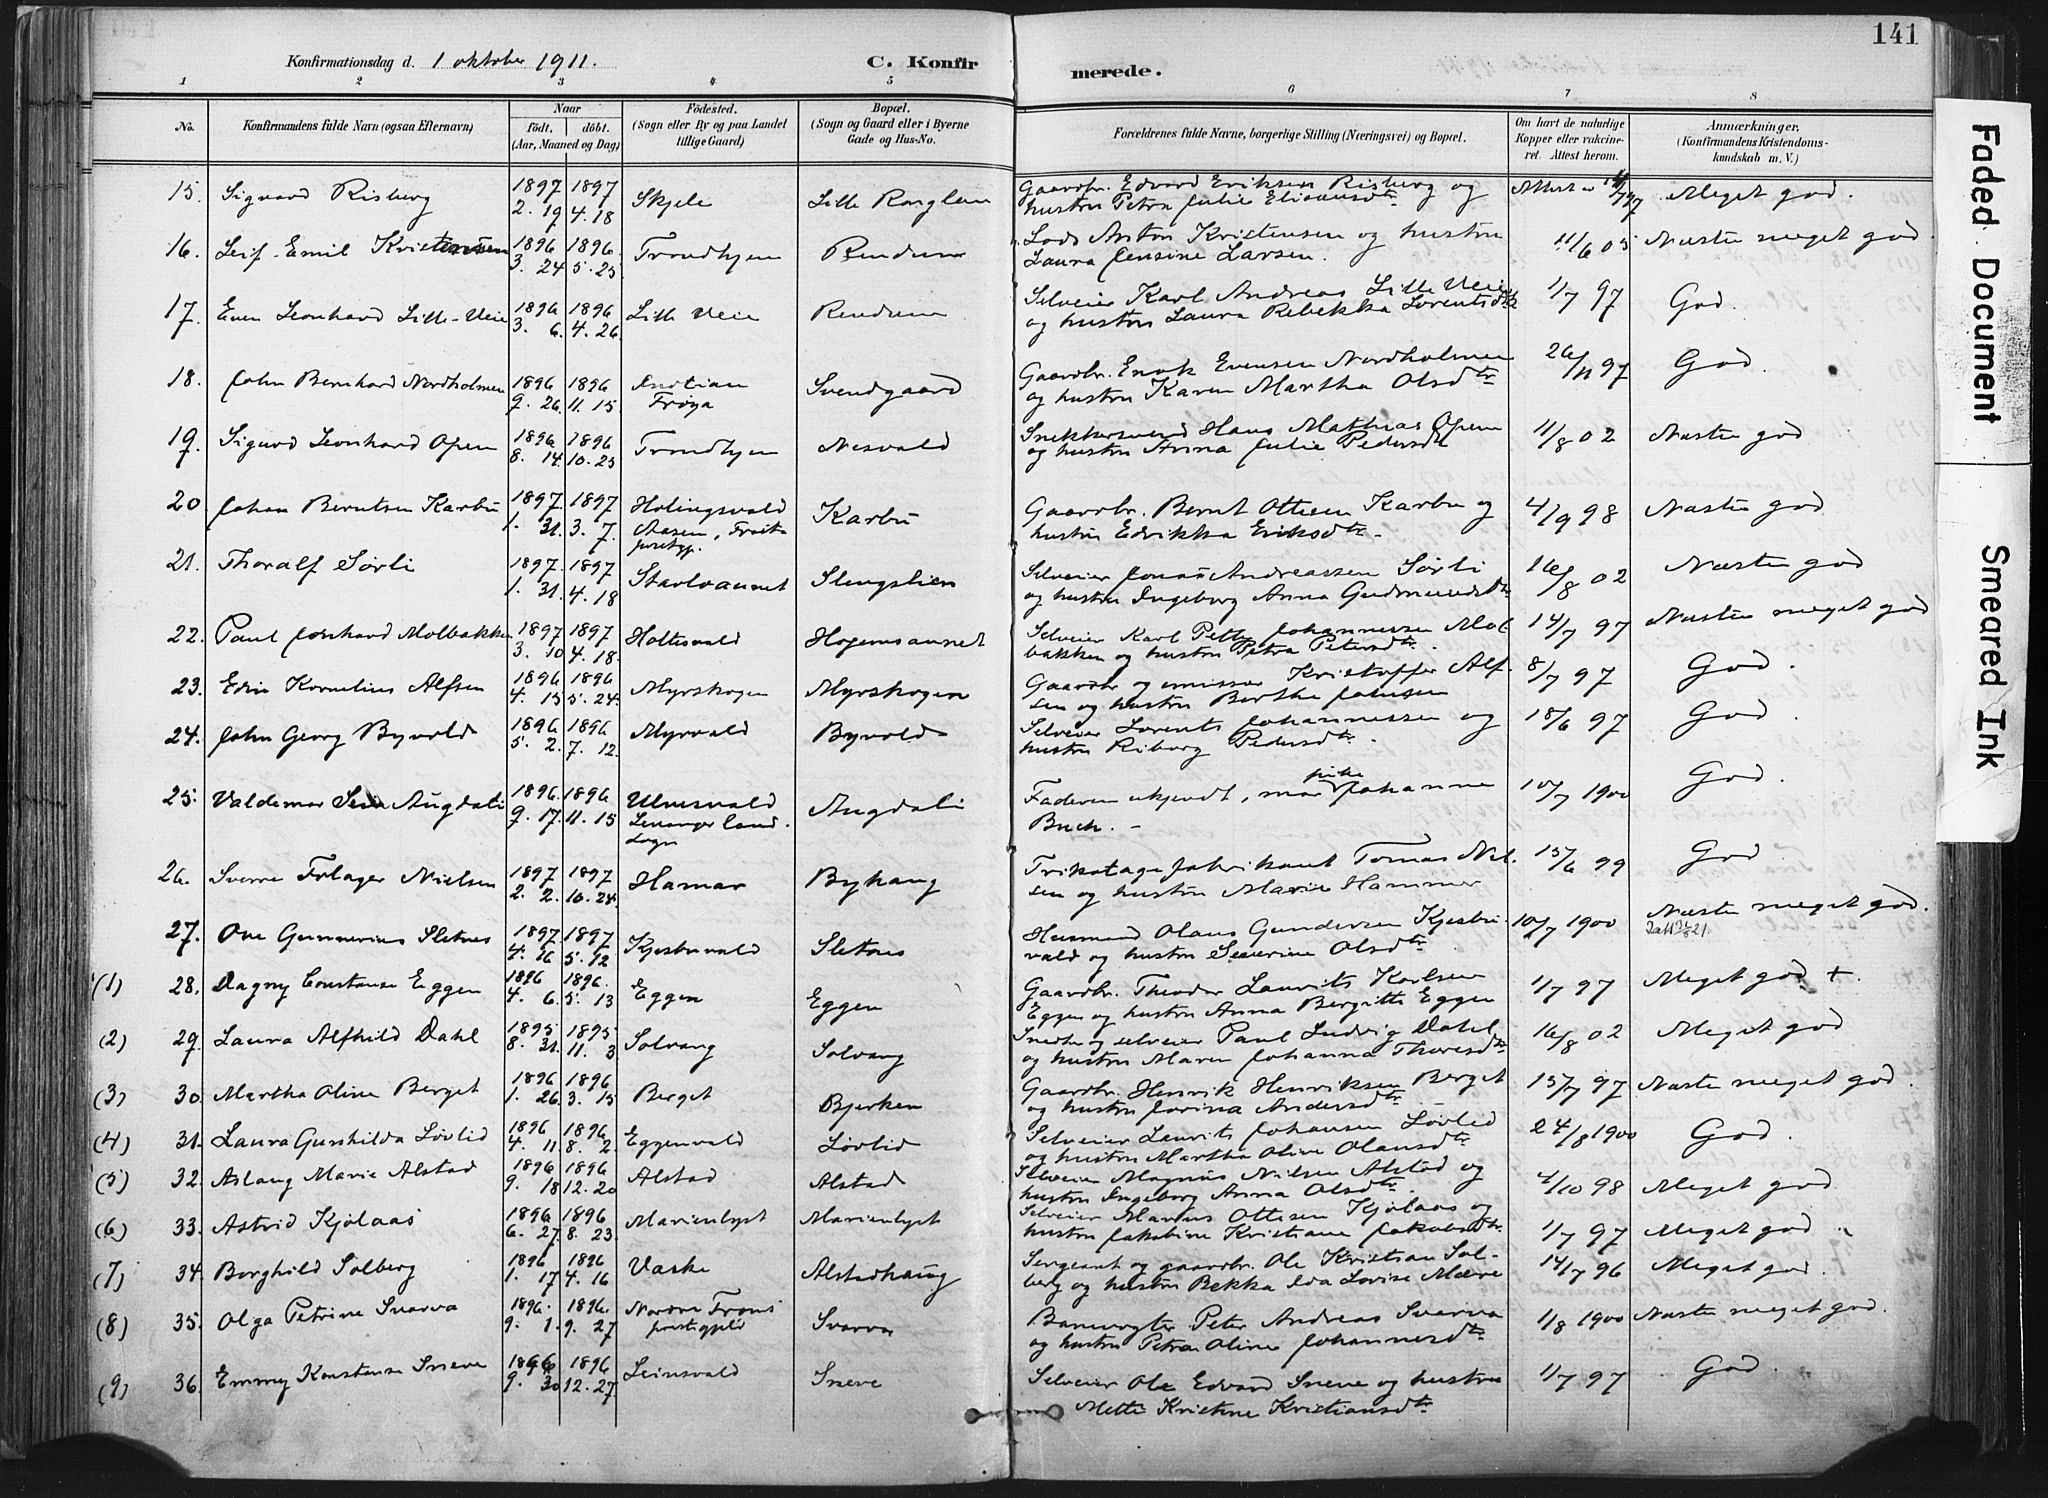 141
Konfirmationsdag d. 1 oktober 1911. C. Konfirmerede.
1 2 3 4 5 6 7 8
No. Konfirmandens fulde Navn (ogsaa Efternavn) Naar födt. döbt. (Aar, Maaned og Dag) Födested. (Sogn eller By og paa Landet tillige Gaard) Bopæl. (Sogn og Gaard eller i Byerne Gade og Hus-No. Forældrenes fulde Navne, borgerlige Stilling (Næringsvei) og Bopæl. Om havt de naturlige Kopper eller vaccineret. Attest herom. Anmærkninger. (Konfirmandens Kristendomskundskab m. V.)
15. Sigvard Risberg 1897 2. 19 1897 4. 18 Skjele Lille Ronglan Gaardbr. Edvard Eriksen Risberg og hustru Petra Julie Eliasdtr. Attest Meget god.
16. Leif Emil Kristensen 1896 3. 24 1896 5. 25 Trondhjem Rendum Lods Anton Kristensen og hustru Laura Jensine Larsen. 11/6 05 Næsten meget god.
17. Even Leonhard Lille-Veie 1896 3. 6. 1896 4. 26. Lille Veie Rendum Selveier Karl Andreas Lille Veie og hustru Laura Rebekka Lorentsdtr 1/7 97 God.
18. John Bernhard Nordholmen 1896 9. 26. 1896 11. 15. Frøya Svendgaard Gaardbr. Enok Evensen Nordholmen og hustru Karen Martha Olsdtr 26/11 97 God.
19. Sigurd Leonhard Open 1896 8. 14. 1896 10. 25 Trondhjem Nesvald Snekkersvend Hans Mathias Open og hustru Anna Julie Pedersdtr 11/8 02 Næsten god
20 Johan Berntsen Karbu 1897. 1. 31. 1897 3. 7. Holingsvald Aasen, Frosta prstgj. Karbu Gaardbr. Bernt Ottesen Karbu og hustru Edrikka Eriksdtr. 4/9 98 Næsten god
21. Thoralf Sørli 1897. 1. 31. 1897 4. 18 Stavlvaunet Slengslien Selveier Jonas Andreassen Sørli og hustru Ingeborg Anna Gudmundsdtr 16/8 02 Næsten god
22. Paul Jonhard Molbakken 1897 3. 10 1897 4. 18. Holtesvald Hojemsaunet Selveier Karl Petter Johannessen Molbakken og hustru Petra Petersdtr. 14/7 97 Næsten meget god
23. Edin Kornelius Alfsen 1896 4. 15 1896 5. 24. Myrskogen Myrskogen Gaardbr og emissær Kristoffer Alfsen og hustru Berthe Johnsen 8/7 97 God.
24. John Georg Byvold 1896 5. 2. 1896 7. 12. Myrvald Byvold Selveier Lorents Johannessen og hustru Riborg Pedersdtr. 18/6 97 God.
25. Valdemar Augdali 1896. 9. 17. 1896 11. 15 Ulvesvald Levanger landsogn Augdali Faderen ukjendt, mor pike Johanne Buch. - 10/7 1900 God.
26. Sverre Folager Nielsen 1897 2. 2. 1897 10. 24. Hamar Byhaug Trikotagefabrikant Tomas Nilsen og hustru Marie Hammer 15/6 99 God.
27. Ove Gunnerius Sletnes 1897 4. 16 1897 5. 12 Kjesbuvald Sletnes Husmand Olaus Gundersen Kjesbuvald og hustru Severine Olsdtr 10/7 1900 Næsten meget god.
(1) 28. Dagny Constanse Eggen 1896 4. 6. 1896. 5. 13 Eggen Eggen Gaardbr. Theodor Laurits Karlsen Eggen og hustru Anna Bergitte Eggen 1/7 97 Meget god +
(2) 29. Laura Alfhild Dahl 1895 8. 31. 1895 11. 3 Solvang Solvang Snedker og selveier Paul Ludvig Dahl og hustru Maren Johanna Thoresdtr 16/8 02 Meget god
(3) 30. Martha Oline Berget 1896 1. 26. 1896 3. 15 Berget Bjerken Gaardbr. Henrik Henriksen Berget og hustru Jovina Andersdtr. 15/7 97 Næsten meget god.
(4) 31. Laura Gunhilda Løvlid 1896 4. 11. 1896. 8. 2. Eggenvald Løvlid Selveier Laurits Johansen Løvlid og hustru Martha Oline Olausdtr. 24/8 1900 God.
(5) 32. Aslaug Marie Alstad 1896 9. 18 1896 12. 20 Alstad Alstad Selveier Magnus Nilsen Alstad og hustru Ingeborg Anna Olsdtr. 4/10 98 Meget god
(6) 33. Astrid Kjølaas 1896 6. 27. 1896 8. 23. Marienlyst Marienlyst Selveier Marius Ottesen Kjølaas og hustru Jakobine Kristiane Jakobsdtr. 1/7 97 Meget god
(7) 34. Borghild Solberg 1896 1. 17 1896 4. 16 Vaske Alstadhaug Sergeant og gaardbr. Ole Kristian Solberg og hustru Bekka Ida Lovise Mære 14/7 96 Meget god.
(8) 35. Olga Petrine Svarva 1896. 9. 1. 1896. 9. 27 Nordre Frons prestegjeld Svarva Banevogter Peter Andreas Svarva og hustru Petra Oline Johannesdtr. 1/8 1900 Næsten meget god.
(9) 36. Emmy Konstanse Sneve 1896 9. 30 1896 12. 27. Leinsvald Sneve Selveier Ole Edvard Sneve og hustru Mette Kristine Kristiansdtr. 1/7 97 God.
Faded Document
Smeared Ink